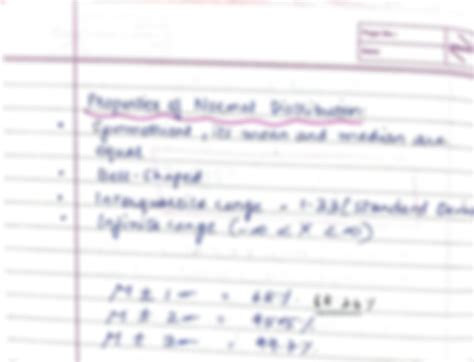 Properties of Normal Distribution:
• Symmetrical, its mean and median are
equal
• Bell-Shaped
• Interquartile range = 1.33 (Standard
• Infinite range (-∞ < X < ∞)
μ ± 1σ = 68%
μ ± 2σ =
μ ± 3σ = 99.7%